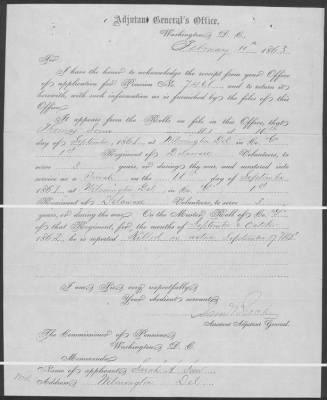 Adjutant General's Office,
Washington, D. C.
February 11th, 1863.
Sir:
I have the honor to acknowledge the receipt from your Office
of application for Pension No. 7461, and to return it
herewith, with such information as is furnished by the files of this
Office.
It appears from the Rolls on file in this Office, that
Thomas was enrolled at on the 10th
day of September, 1861, at Wilmington Del, in Co. C
1st Regiment of Delaware Volunteers, to
serve 3 years, or during the war, and mustered into
service as a Private on the 11th day of September
1861, at Wilmington Del, in Co. C 1st
Regiment of Delaware Volunteers, to serve 3
years, or during the war. On the Muster Roll of Co. C
of that Regiment, for the months of September & October
1862, he is reported Killed in action September 17th 62
I am, Sir, very respectfully,
Your obedient servant,
Assistant Adjutant General.
The Commissioner of Pensions,
Washington, D. C.
Memoranda.
Name of applicant, Sarah A.
Address, Wilmington Del.